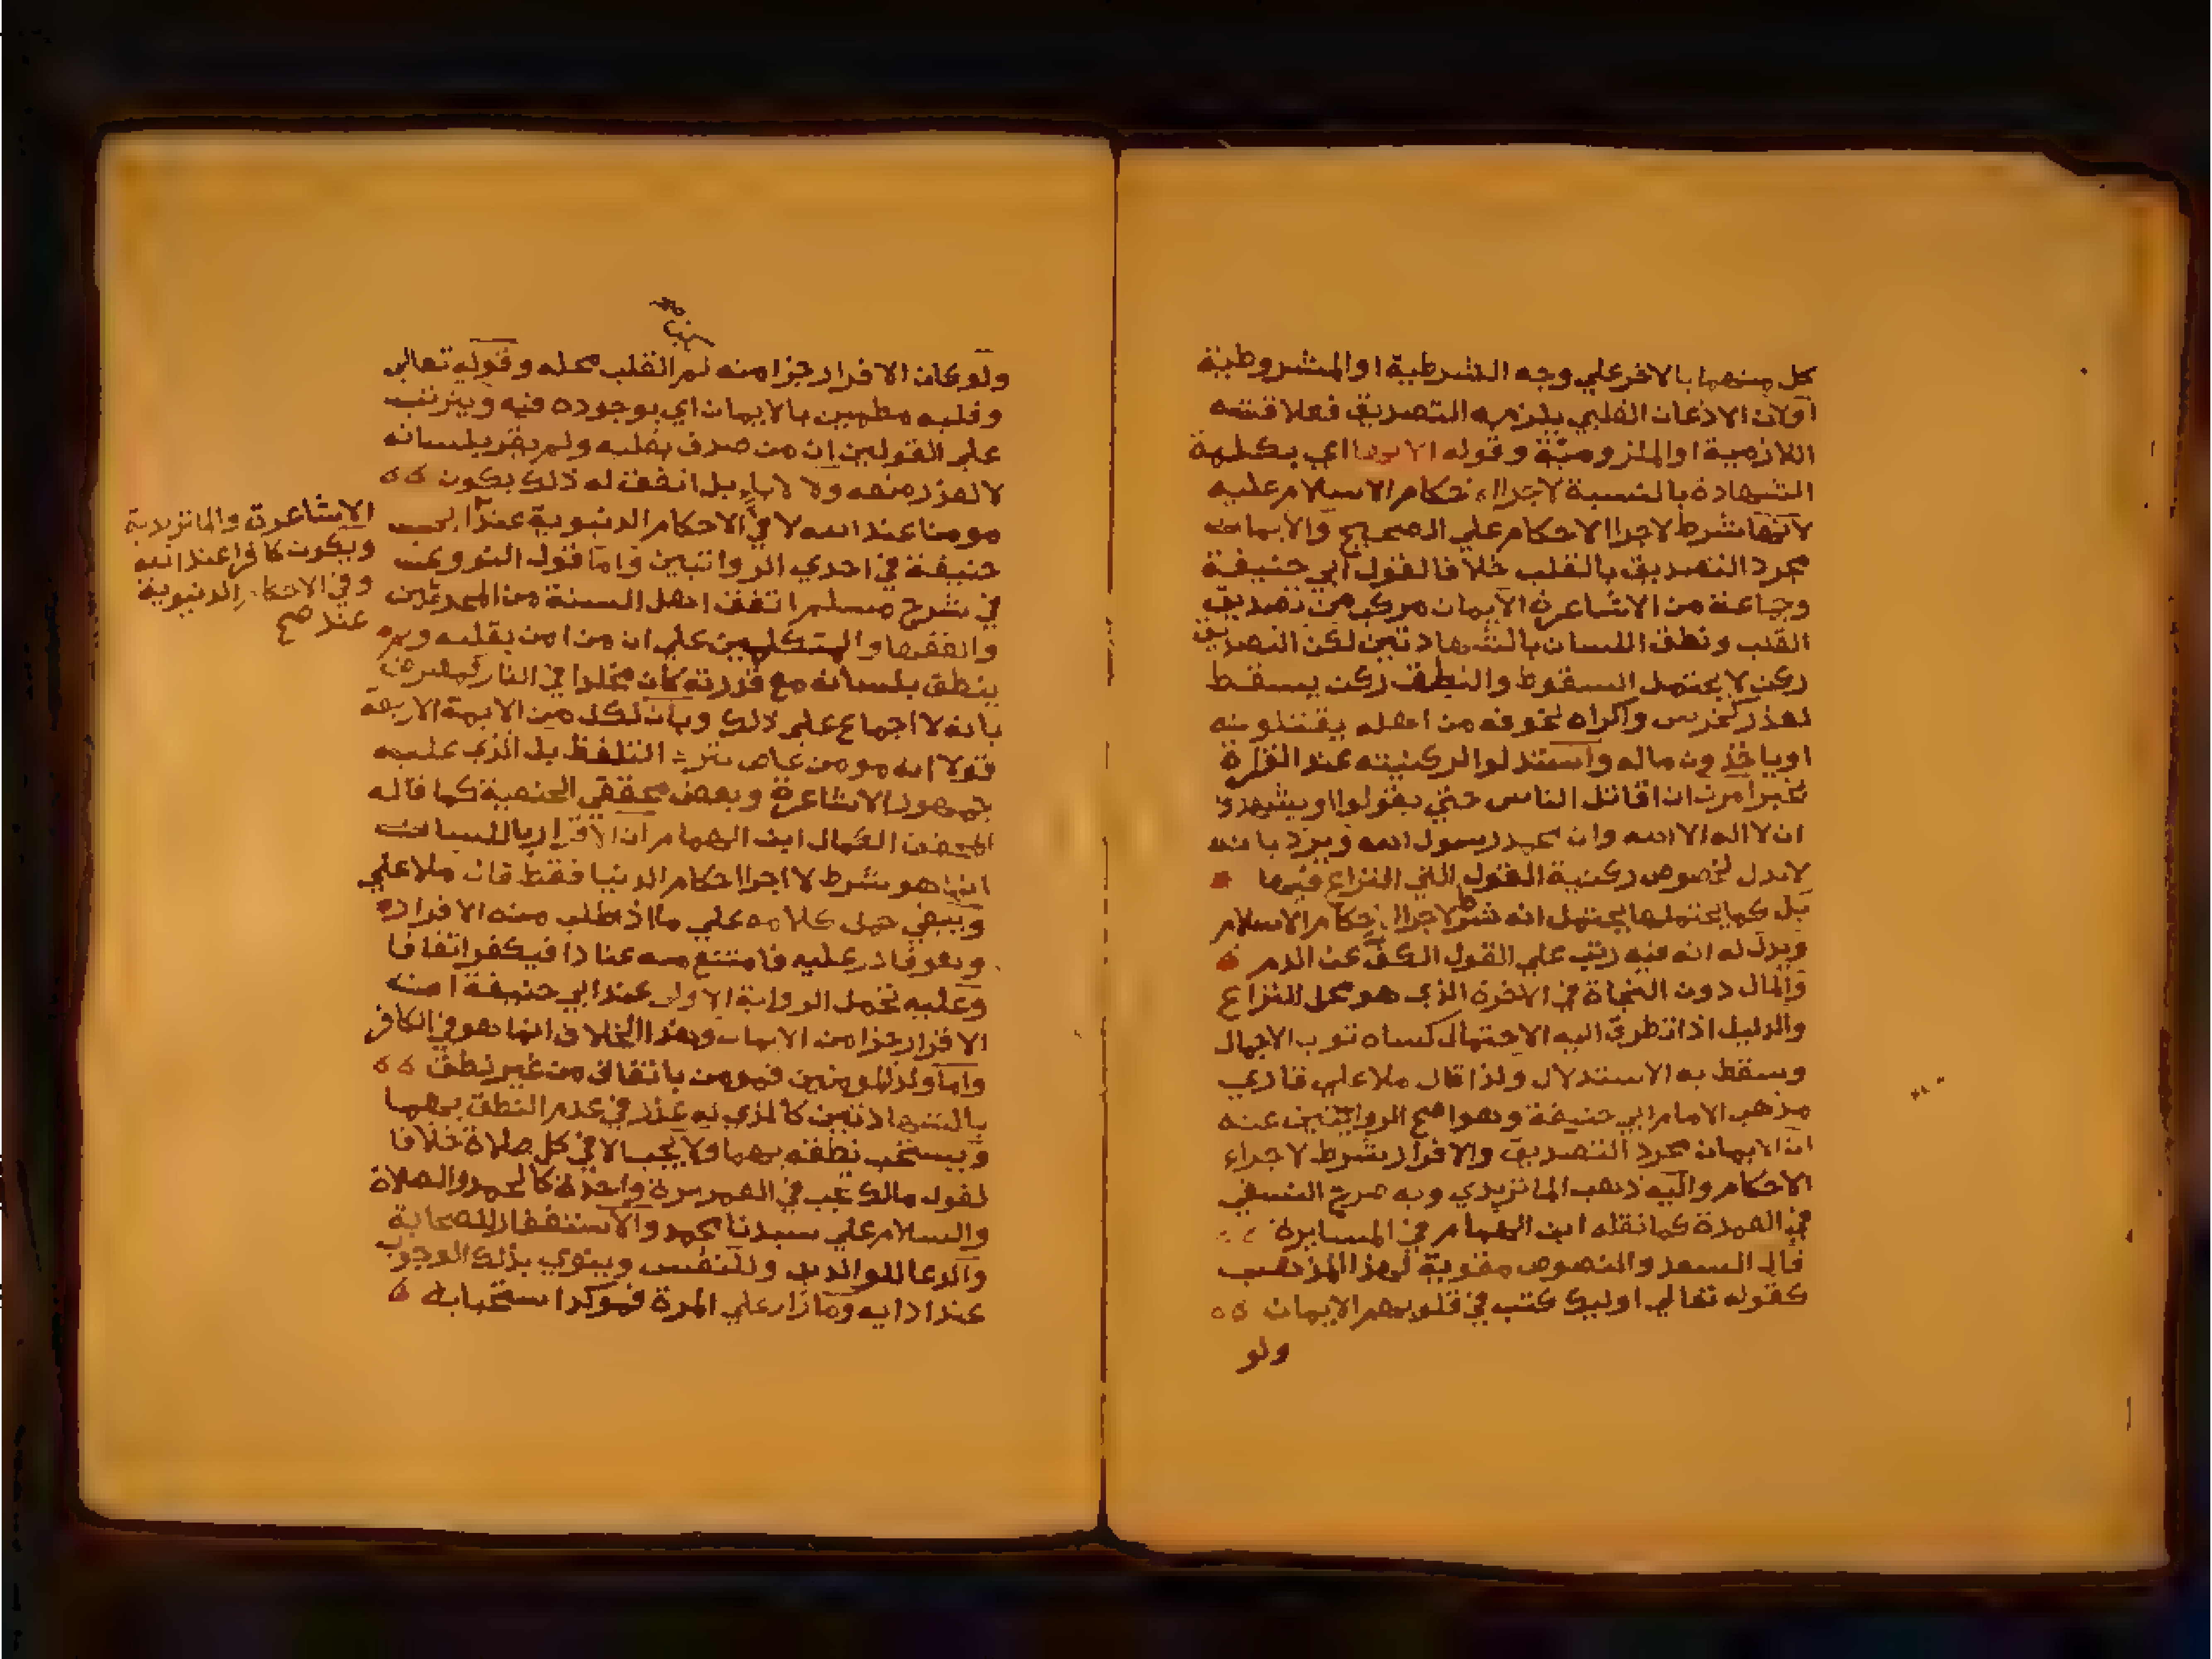 كل منهما بالاخر علي وجه الشرطية او المشروطية
اولان الاذعان القلبي يلزمه التصديق فعلاقته
اللازمية او الملزومية وقوله الا بها اي بكلمة
الشهادة بالنسبة لاجراء احكام الاسلام عليه
لانها شرط لاجرا الاحكام علي الصحيح والايمان
مجرد التصديق بالقلب خلافا لقول ابي حنيفة
وجماعة من الاشاعرة الايمان مركب من تصديق
القلب ونطق اللسان بالشهادتين لكن التصديق
ركن لا يحتمل السقوط والنطق ركن يسقط
لعذر كخرس واكراه لخوفه من اهله يقتلونه
او ياخذون ماله واستدلوا لركنيته عند القدرة
بخبر امرت ان اقاتل الناس حتي يقولوا او يشهدوا
ان لا اله الا الله وان محمد رسول الله ويرد بانه
لا يدل لخصوص ركنية القول التي النزاع فيها
بل كما يحتملها يحتمل انه شرط لاجرا احكام الاسلام
ويدل له انه فيه رتب علي القول الكف عن الدم
والمال دون النجاة في الاخرة الذي هو محل النزاع
والدليل اذا تطرق اليه الاحتمال كساه ثوب الاجمال
وسقط به الاستدلال ولذا قال ملا علي قاري
مذهب الامام ابي حنيفة وهو اصح الروايتين عنه
ان الايمان مجرد التصديق والاقرار شرط لاجراء
الاحكام واليه ذهب الماتريدي وبه صرح النسفي
في العمدة كما نقله ابن الهمام في المسايرة
قال السعد والنصوص مقوية لهذا المذهب
كقوله تعالي اوليك كتب في قلوبهم الايمان
ولو
ولو كان الاقرار جزا منه لم القلب محله وقوله تعالي
وقلبه مطمين بالايمان اي بوجوده فيه ويترتب
علي القولين ان من صدق بقلبه ولم يقر بلسانه
لا لعذر منعه ولا لاباء بل اتفق له ذلك يكون
مومنا عند الله لا في الاحكام الدنيوية عند ابي
حنيفة في احدي الروايتين واما قول النووي
في شرح مسلم اتفق اهل السنة من المحدثين
والفقها والمتكلمين علي ان من امن بقلبه ولم
ينطق بلسانه مع قدرته كان مخلدا في النار
بانه لا اجماع علي ذلك وبان لكل من الايمة الاربعة
قولا انه مومن عاص بترك التلفظ بل الذي عليه
جمهور الاشاعرة وبعض محققي الحنفية كما قاله
المحقق الكمال ابن الهمام ان الاقرار باللسان
انما هو شرط لاجرا احكام الدنيا فقط قال ملا علي
وينبغي حمل كلامه علي ما اذا طلب منه الاقرار
وهو قادر عليه فامتنع منه عنادا فيكفر اتفاقا
وعليه تحمل الرواية الاولي عند ابي حنيفة ان
الاقرار جزا من الايمان وهذا الخلاف انما هو في الكافر
واما ولد المومنين فمومن باتفاق من غير نطق
بالشهادتين كالذي له عذر في عدم النطق بهما
ويستحب نطقه بهما ولا يجب الا في كل صلاة خلافا
لقول مالك تجب في العمر مرة واحدة كالحمد والصلاة
والسلام علي سيدنا محمد والاستغفار للصحابة
والدعا للوالدين وللنفس وينوي بذلك الوجوب
عند ادايه وما زاد علي المرة فموكد استحبابه
الاشاعرة والماتريدية
ويكون كافرا عند الله
وفي الاحكام الدنيوية
عند صح